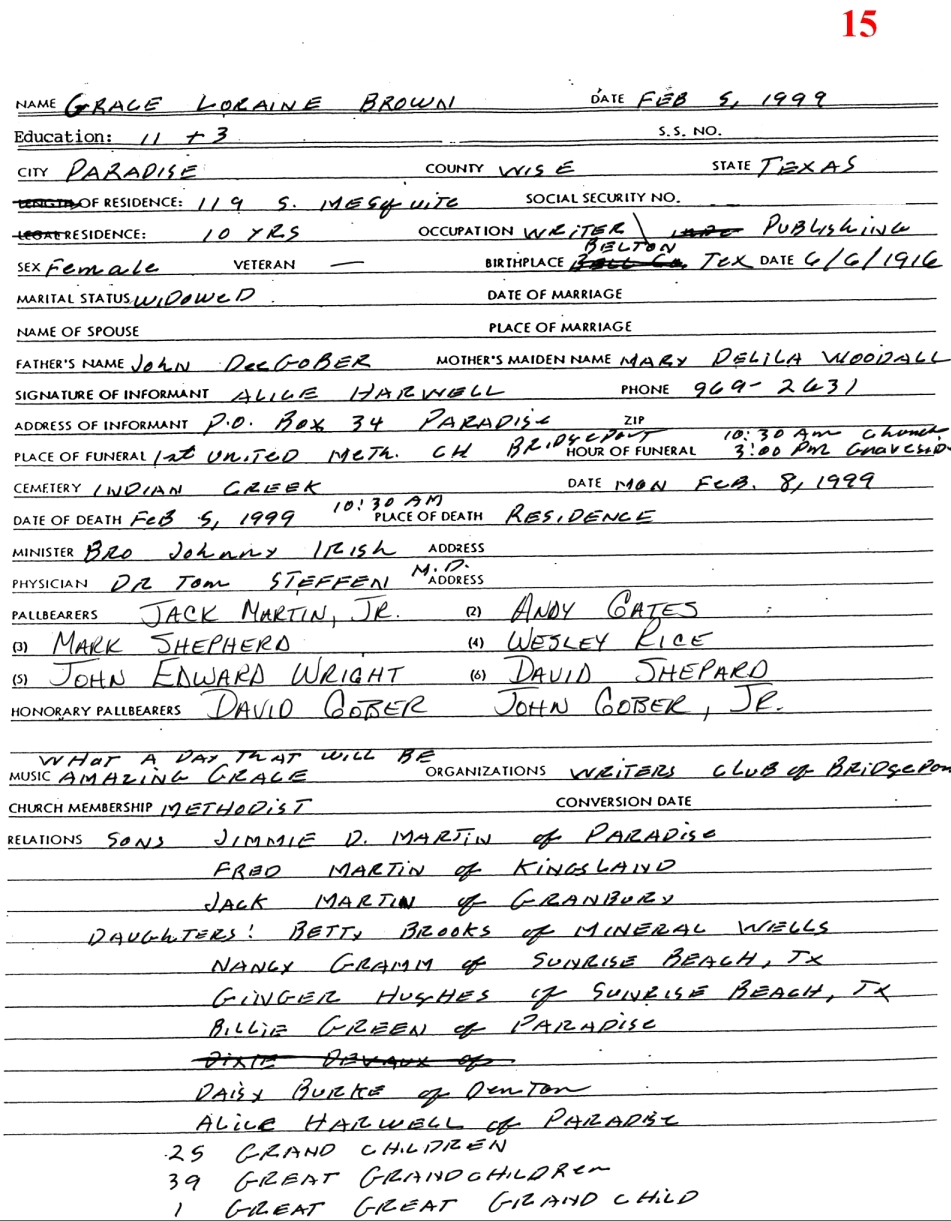 15
NAME GRACE LORAINE BROWN DATE FEB 5, 1999
Education: 11 + 3 S.S. NO.
CITY PARADISE COUNTY WISE STATE TEXAS
LENGTH OF RESIDENCE: 119 S. MESQUITE SOCIAL SECURITY NO.
LEGAL RESIDENCE: 10 YRS OCCUPATION WRITER \ PUBLISHING
SEX Female VETERAN — BIRTHPLACE BELTON Bell Co, Tex DATE 6/6/1916
MARITAL STATUS WIDOWED DATE OF MARRIAGE
NAME OF SPOUSE PLACE OF MARRIAGE
FATHER'S NAME John Dee GOBER MOTHER'S MAIDEN NAME MARY DELILA WOODALL
SIGNATURE OF INFORMANT ALICE HARWELL PHONE 969-2631
ADDRESS OF INFORMANT P.O. Box 34 PARADISE ZIP
PLACE OF FUNERAL 1st UNITED Meth. CH BRIDGEPORT HOUR OF FUNERAL 10:30 Am Church 3:00 Pm Graveside
CEMETERY INDIAN CREEK DATE MON FEB. 8, 1999
DATE OF DEATH FEB 5, 1999 10:30 AM PLACE OF DEATH RESIDENCE
MINISTER BRO Johnny IRISH ADDRESS
PHYSICIAN DR Tom STEFFEN M.D. ADDRESS
PALLBEARERS JACK MARTIN, JR. (2) ANDY GATES
(3) MARK SHEPHERD (4) WESLEY RICE
(5) JOHN EDWARD WRIGHT (6) DAVID SHEPARD
HONORARY PALLBEARERS DAVID GOBER JOHN GOBER, JR.
WHAT A DAY THAT WILL BE
MUSIC AMAZING GRACE ORGANIZATIONS WRITERS CLUB of BRIDGEPORT
CHURCH MEMBERSHIP METHODIST CONVERSION DATE
RELATIONS SONS JIMMIE D. MARTIN of PARADISE
FRED MARTIN of KINGSLAND
JACK MARTIN of GRANBURY
DAUGHTERS: BETTY BROOKS of MINERAL WELLS
NANCY GRAMM of SUNRISE BEACH, TX
GINGER HUGHES of SUNRISE BEACH, TX
BILLIE GREEN of PARADISE
DIXIE DEVAUX of
DAISY BURKE of Denton
ALICE HARWELL of PARADISE
25 GRAND CHILDREN
39 GREAT GRANDCHILDREN
1 GREAT GREAT GRAND CHILD